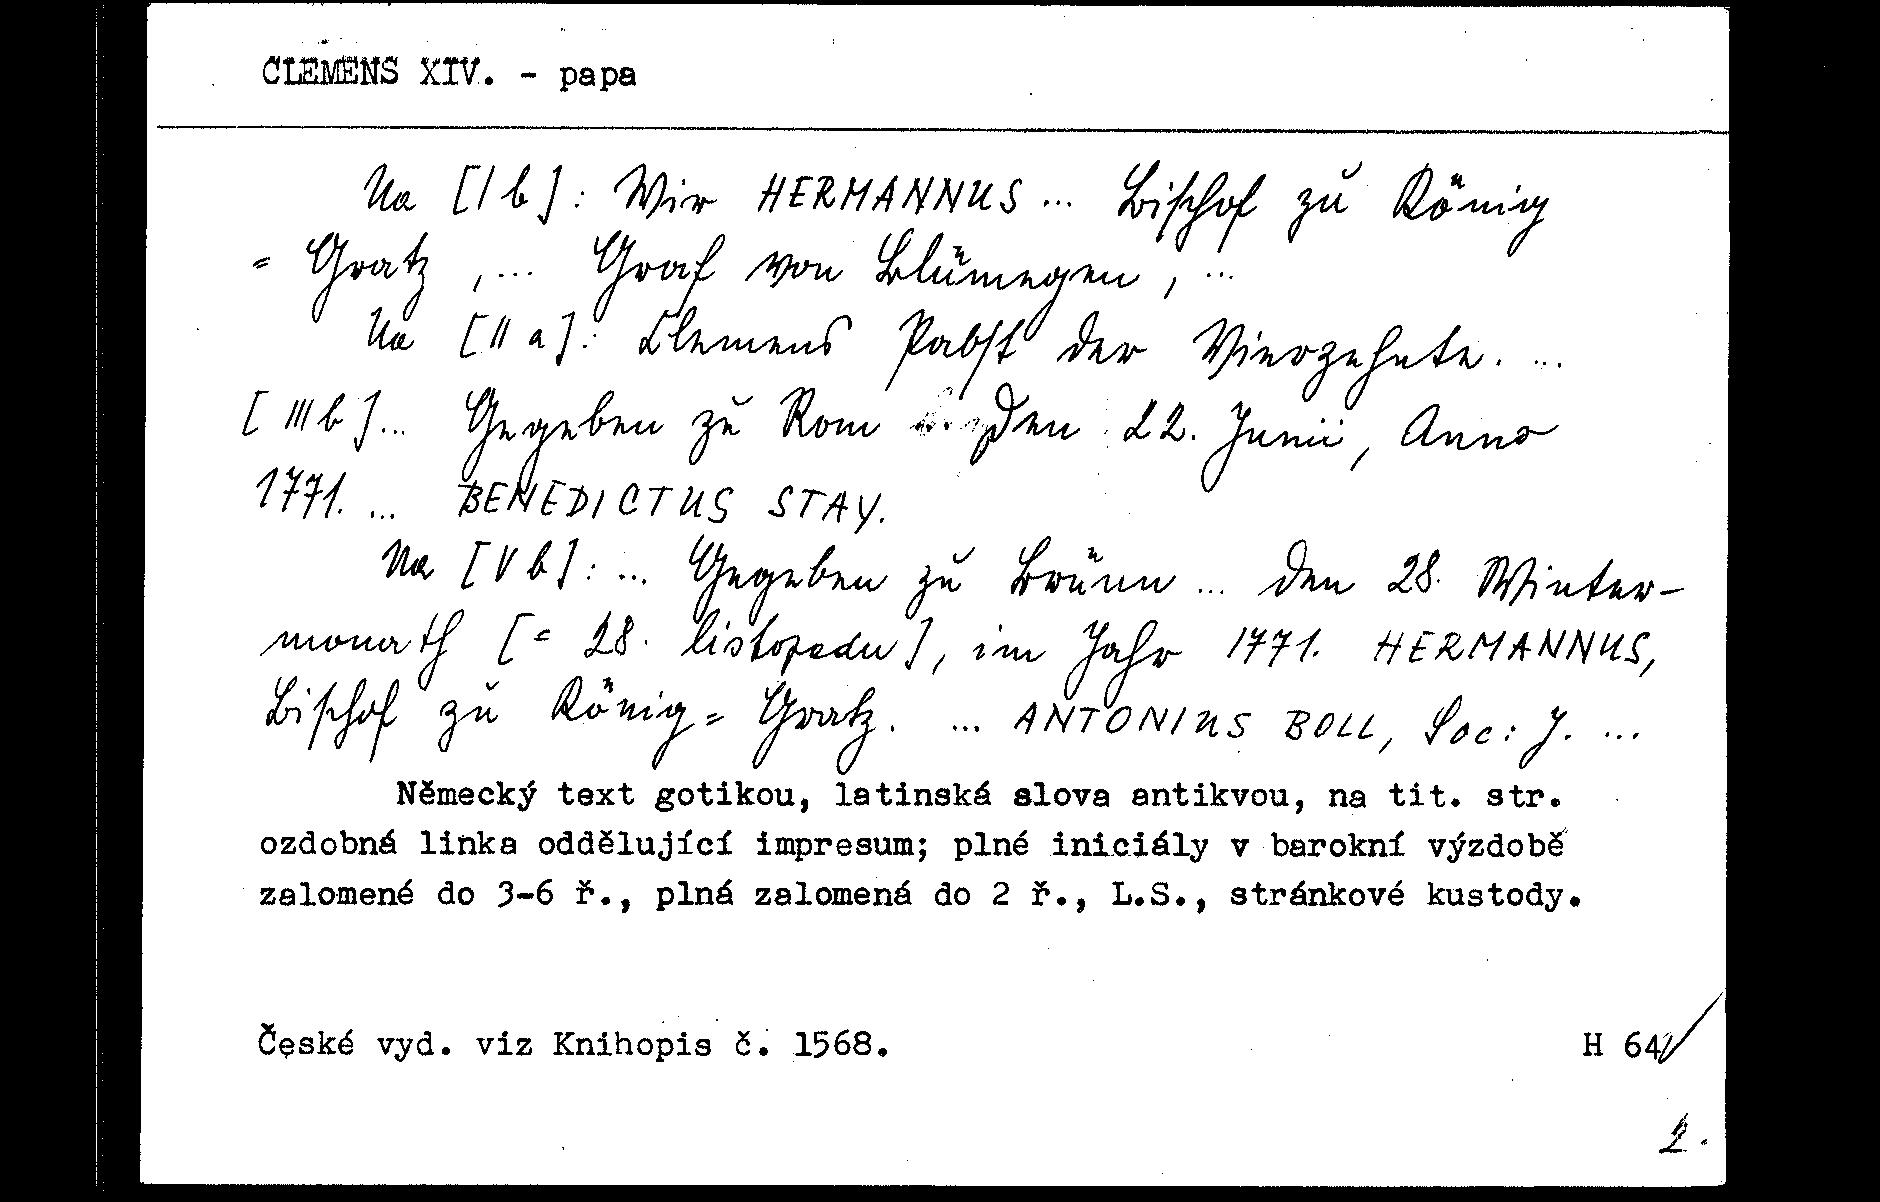 CLEMENS XIV. - papa
Na [I b]: Wir HERMANNUS ... Bischof zu König
= Gratz, ... Graf von Blümegen, ...
Na [II a]: Clemens Pabst der Vierzehnte. ...
[III b] ... Gegeben zu Rom den 22. Junii, Anno
1771. ... BENEDICTUS STAY.
Na [V b]: ... Gegeben zu Brünn ... den 28. Winter-
monath [= 28. listopadu], im Jahr 1771. HERMANNUS,
Bischof zu König= Gratz. ... ANTONIUS BOLL, Soc: J. ...
Německý text gotikou, latinská slova antikvou, na tit. str.
ozdobná linka oddělující impresum; plné iniciály v barokní výzdobě
zalomené do 3-6 ř., plná zalomená do 2 ř., L.S., stránkové kustody.
České vyd. viz Knihopis č. 1568.
H 64
2.